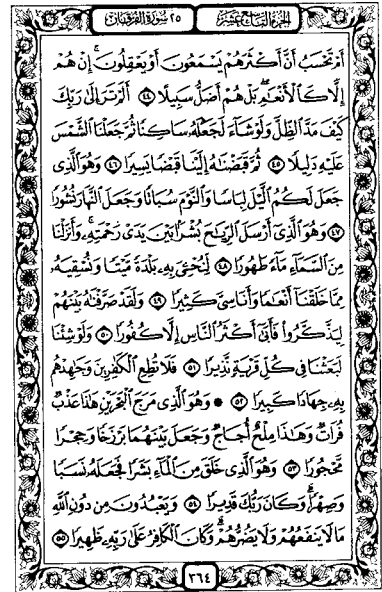 الجزء التاسع عشر
٢٥ سورة الفرقان
أَمْ تَحْسَبُ أَنَّ أَكْثَرَهُمْ يَسْمَعُونَ أَوْ يَعْقِلُونَ ۚ إِنْ هُمْ
إِلَّا كَالْأَنْعَامِ ۖ بَلْ هُمْ أَضَلُّ سَبِيلًا ٤٤ أَلَمْ تَرَ إِلَىٰ رَبِّكَ
كَيْفَ مَدَّ الظِّلَّ وَلَوْ شَاءَ لَجَعَلَهُ سَاكِنًا ثُمَّ جَعَلْنَا الشَّمْسَ
عَلَيْهِ دَلِيلًا ٤٥ ثُمَّ قَبَضْنَاهُ إِلَيْنَا قَبْضًا يَسِيرًا ٤٦ وَهُوَ الَّذِي
جَعَلَ لَكُمُ اللَّيْلَ لِبَاسًا وَالنَّوْمَ سُبَاتًا وَجَعَلَ النَّهَارَ نُشُورًا
٤٧ وَهُوَ الَّذِي أَرْسَلَ الرِّيَاحَ بُشْرًا بَيْنَ يَدَيْ رَحْمَتِهِ ۚ وَأَنْزَلْنَا
مِنَ السَّمَاءِ مَاءً طَهُورًا ٤٨ لِنُحْيِيَ بِهِ بَلْدَةً مَيْتًا وَنُسْقِيَهُ
مِمَّا خَلَقْنَا أَنْعَامًا وَأَنَاسِيَّ كَثِيرًا ٤٩ وَلَقَدْ صَرَّفْنَاهُ بَيْنَهُمْ
لِيَذَّكَّرُوا فَأَبَىٰ أَكْثَرُ النَّاسِ إِلَّا كُفُورًا ٥٠ وَلَوْ شِئْنَا
لَبَعَثْنَا فِي كُلِّ قَرْيَةٍ نَذِيرًا ٥١ فَلَا تُطِعِ الْكَافِرِينَ وَجَاهِدْهُمْ
بِهِ جِهَادًا كَبِيرًا ٥٢ * وَهُوَ الَّذِي مَرَجَ الْبَحْرَيْنِ هَٰذَا عَذْبٌ
فُرَاتٌ وَهَٰذَا مِلْحٌ أُجَاجٌ وَجَعَلَ بَيْنَهُمَا بَرْزَخًا وَحِجْرًا
مَحْجُورًا ٥٣ وَهُوَ الَّذِي خَلَقَ مِنَ الْمَاءِ بَشَرًا فَجَعَلَهُ نَسَبًا
وَصِهْرًا ۗ وَكَانَ رَبُّكَ قَدِيرًا ٥٤ وَيَعْبُدُونَ مِنْ دُونِ اللَّهِ
مَا لَا يَنْفَعُهُمْ وَلَا يَضُرُّهُمْ ۗ وَكَانَ الْكَافِرُ عَلَىٰ رَبِّهِ ظَهِيرًا ٥٥
٣٦٤